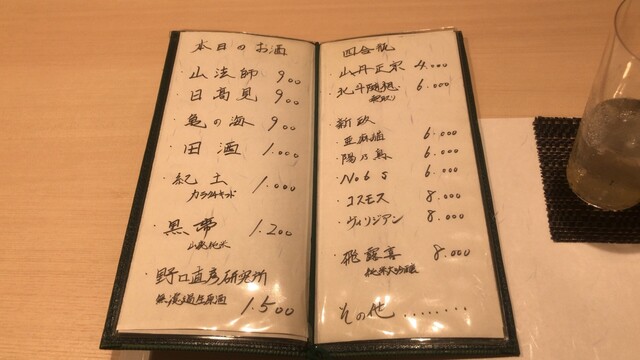 本日のお酒
・山法師 900
・日高見 900
・亀の海 900
・田酒 1.000
・紀土 1.000
カラクチキッド
・黒帯 1.200
山廃純米
・野口直彦研究所
無濾過生原酒 1.500
四合瓶
・山丹正宗 4.000
・北斗随想 6.000
新政
・亜麻猫 6.000
・陽乃鳥 6.000
・No6 S 6.000
・コスモス 8.000
・ヴィリジアン 8.000
・飛露喜 8.000
純米大吟醸
その他 ........